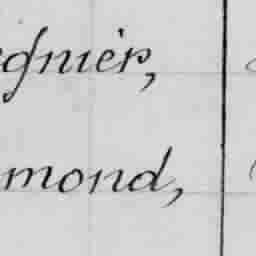 egnier,
mond,